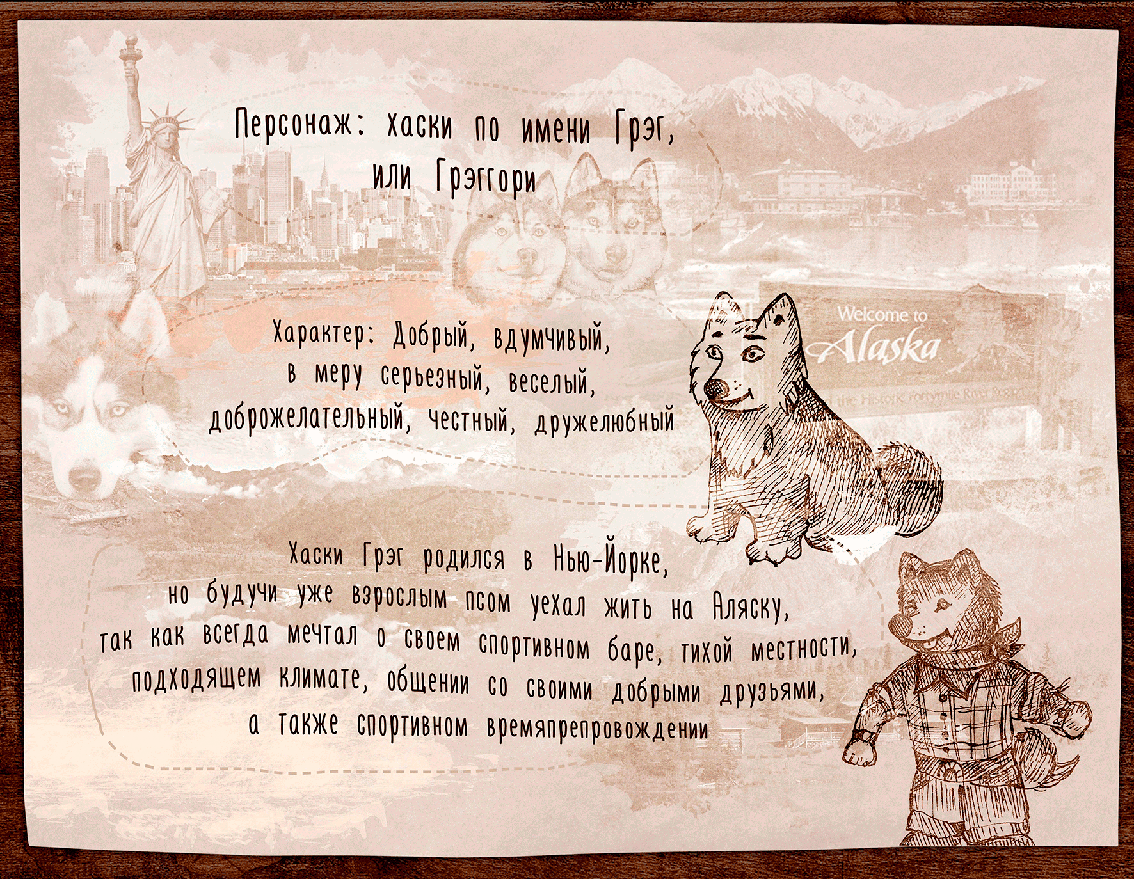 Персонаж: хаски по имени Грэг,
или Грэггори
Welcome to
Alaska
Характер: Добрый, вдумчивый,
в меру серьезный, веселый,
доброжелательный, честный, дружелюбный
Хаски Грэг родился в Нью-Йорке,
но будучи уже взрослым псом уехал жить на Аляску,
так как всегда мечтал о своем спортивном баре, тихой местности,
подходящем климате, общении со своими добрыми друзьями,
а также спортивном времяпрепровождении